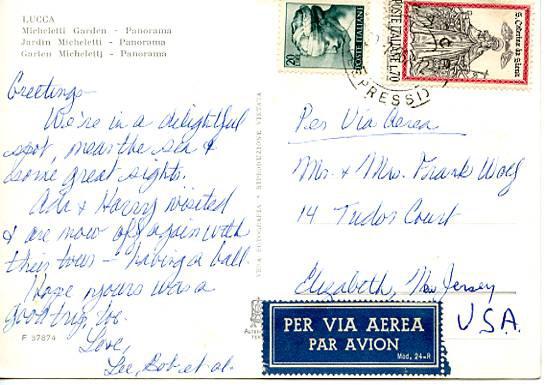 LUCCA
Micheletti Garden - Panorama
Jardin Micheletti - Panorama
Garten Micheletti - Panorama
Greetings -
We're in a delightful
spot, near the sea &
some great sights.
Ada & Harry visited
& are now off again with
their tour - having a ball.
Hope yours was a
good trip, too.
Love,
Lee, Bob, et al.
F 37874
VERA FOTOGRAFIA - RIPRODUZIONE VIETATA
POSTE ITALIANE
S. Caterina da Siena
POSTE ITALIANE L. 70
ESPRESSI
Per Via Aerea
Mr. & Mrs. Frank Wolf
14 Tudor Court
Elizabeth, New Jersey
USA.
PER VIA AEREA
PAR AVION
Mod. 24-R